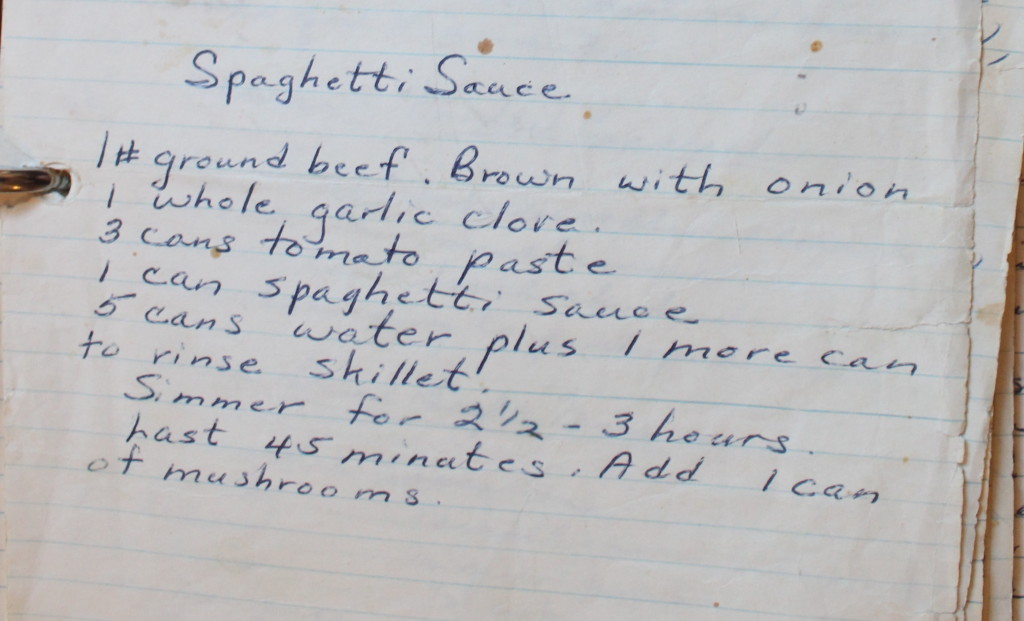 Spaghetti Sauce
1# ground beef. Brown with onion
1 whole garlic clove.
3 cans tomato paste
1 can spaghetti sauce
5 cans water plus 1 more can
to rinse skillet.
Simmer for 2 1/2 - 3 hours.
Last 45 minutes. Add 1 can
of mushrooms.